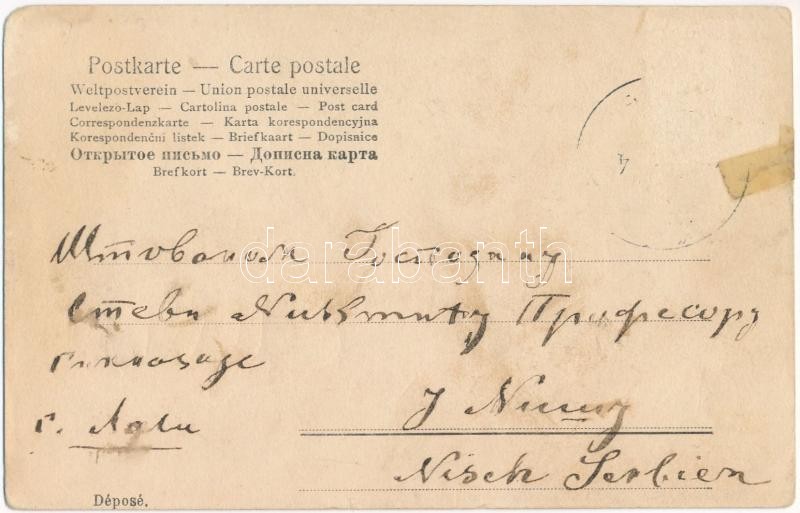 Postkarte — Carte postale
Weltpostverein — Union postale universelle
Levelező-Lap — Cartolina postale — Post card
Correspondenzkarte — Karta korespondencyjna
Korespondenční listek — Briefkaart — Dopisnice
Открытое письмо — Дописна карта
Brefkort — Brev-Kort.
darabanth
Штованом Господину
Стеви Професору
г.
У Нишу
Nisch Serbien
Déposé.